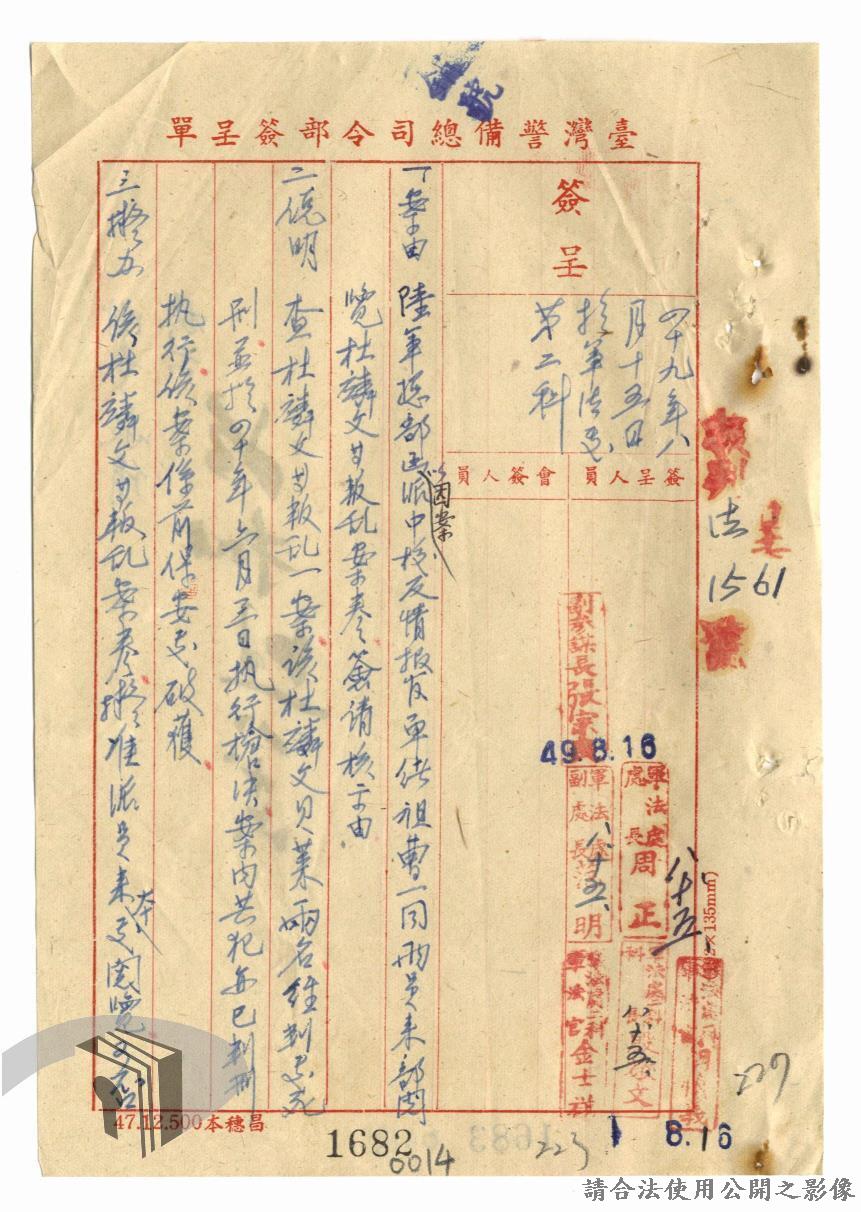 號
臺灣警備總司令部簽呈單
簽呈
四十九年八
月十五日
於軍法處
第二科
簽呈人員
會簽人員
一案由 陸軍總部函派中校反情報官單緒祖曹一同兩員來部閱
以因案
覽杜麟文等叛乱案卷簽請核示由
二說明 查杜麟文等叛乱一案該杜麟文貝萊兩名經判處死
刑並於四十年六月三日执行槍決案內共犯亦已判刑
执行該案係前保安處破獲
三擬办 該杜麟文等叛乱案卷擬准派員來本處閱覽可否
法
1561
副參謀長張宗
49.8.16
軍法處
處長周正
八、十五、
軍法處
副處長
明
八十五、
科
文
八十五、
軍法官金士祥
227
8.16
223
47.12.500本穗昌
1682
0014
2×135mm)
請合法使用公開之影像